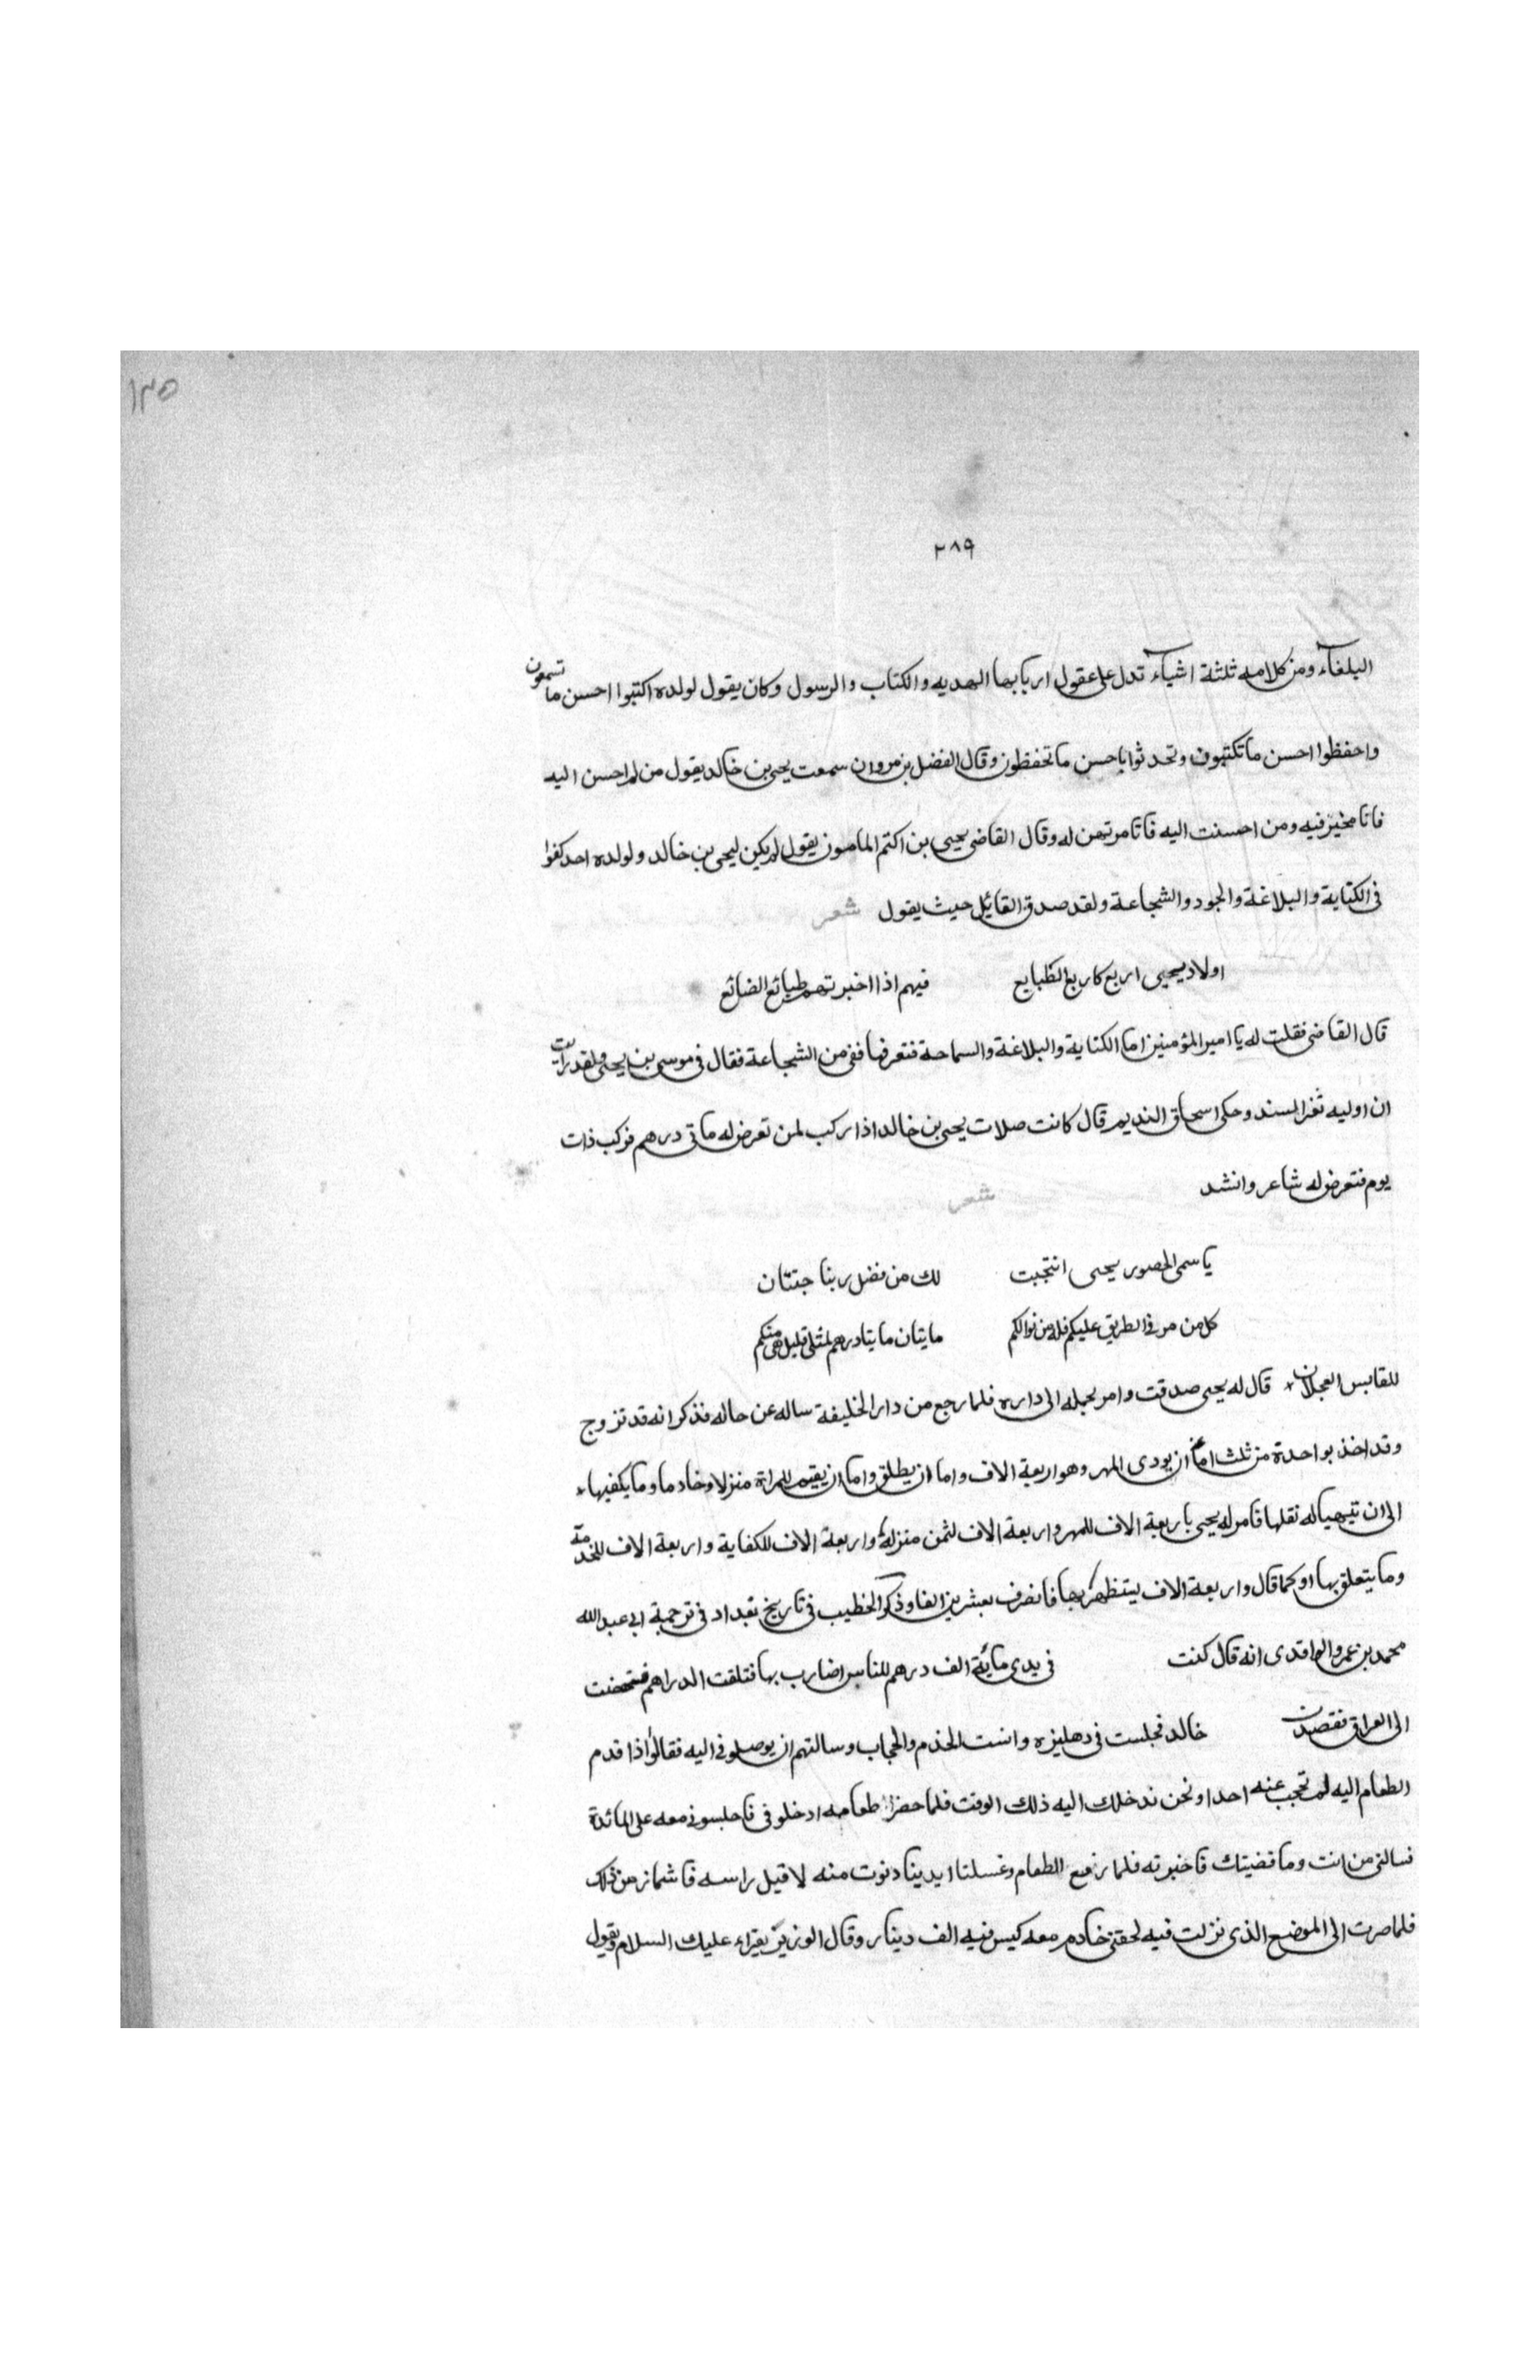 ١٣٥
٢٨٩
البلغآء ومن كلامه ثلثة اشيآء تدل على عقول اربابها الهديه والكتاب والرسول وكان يقول لولده اكتبوا احسن ما تسمعون
واحفظوا احسن ما تكتبون وتحدثوا باحسن ما تحفظون وقال الفضل بن مروان سمعت يحيى بن خالد يقول من لم احسن اليه
فانا مخير فيه ومن احسنت اليه فانا مرتهن له وقال القاضى يحيى بن اكتم المامون يقول لم يكن ليحيى بن خالد ولولده احد كفوا
فى الكتابة والبلاغة والجود والشجاعة ولقد صدق القائل حيث يقول شعر
اولاد يحيى اربع كاربع الطبايع فيهم اذا اخبرتهم طبائع الضائع
قال القاضى فقلت له يا امير المؤمنين اما الكتابة والبلاغة والسماحة فنعرفها ففى من الشجاعة فقال فى موسى بن يحيى ولقد رايت
ان اوليه ثغر السند وحكى اسحاق النديم قال كانت صلات يحيى بن خالد اذا ركب لمن تعرض له ماتى درهم فركب ذات
يوم فتعرض له شاعر وانشد شعر
يا سمى الحصور يحيى انتجبت لك من فضل ربنا جنتان
كل من مر فى الطريق عليكم فله من نوالكم مايتان مايتا درهم لمثلى قليل هى منكم
للقابس العجلان قال له يحيى صدقت وامر بحمله الى داره فلما رجع من دار الخليفة ساله عن حاله فذكر انه قد تزوج
وقد اخذ بواحدة من ثلث اما ان يودى المهر وهو اربعة الاف واما ان يطلق واما ان يقيم للمراة منزلا وخادما وما يكفيها
الى ان تتيهيا له نقلها فامر له يحيى باربعة الاف للمهر واربعة الاف لثمن منزله واربعة الاف للكفاية واربعة الاف للخدمة
وما يتعلق بها او كما قال واربعة الاف يستظهر بها فانصرف بعشرين الفا وذكر الخطيب فى تاريخ بغداد فى ترجمة ابى عبد الله
محمد بن عمر والواقدى انه قال كنت فى يدى مائة الف درهم للناس اضارب بها فتلفت الدراهم فشخصت
الى العراق فقصدت خالد فجلست فى دهليزه وانست الخدم والحجاب وسالتهم ان يوصلونى اليه فقالوا اذا قدم
الطعام اليه لم تحجب عنه احدا ونحن ندخلك اليه ذلك الوقت فلما حضر طعامه ادخلونى فاجلسونى معه على المائدة
فسالنى من انت وما قضيتك فاخبرته فلما رفع الطعام وغسلنا ايدينا دنوت منه لاقبل راسه فاشماز من ذلك
فلما صرت الى الموضع الذى نزلت فيه لحقنى خادم معه كيس فيه الف دينار وقال الوزير يقراء عليك السلام ويقول